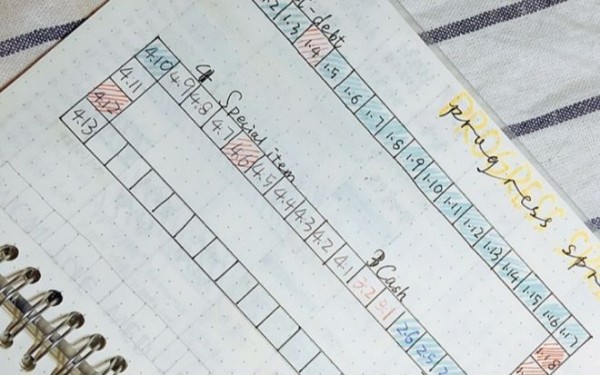 PROGRESS
progress
debt
1.3 1.4 1.5 1.6 1.7 1.8 1.9 1.10 1.11 1.12 1.13 1.14 1.15 1.16 1.17
1.18
3 Cash
4 Special item
4.10 4.9 4.8 4.7 4.6 4.5 4.4 4.3 4.2 4.1 3.2 3.1 2.6 2.5
4.11
4.12
4.13